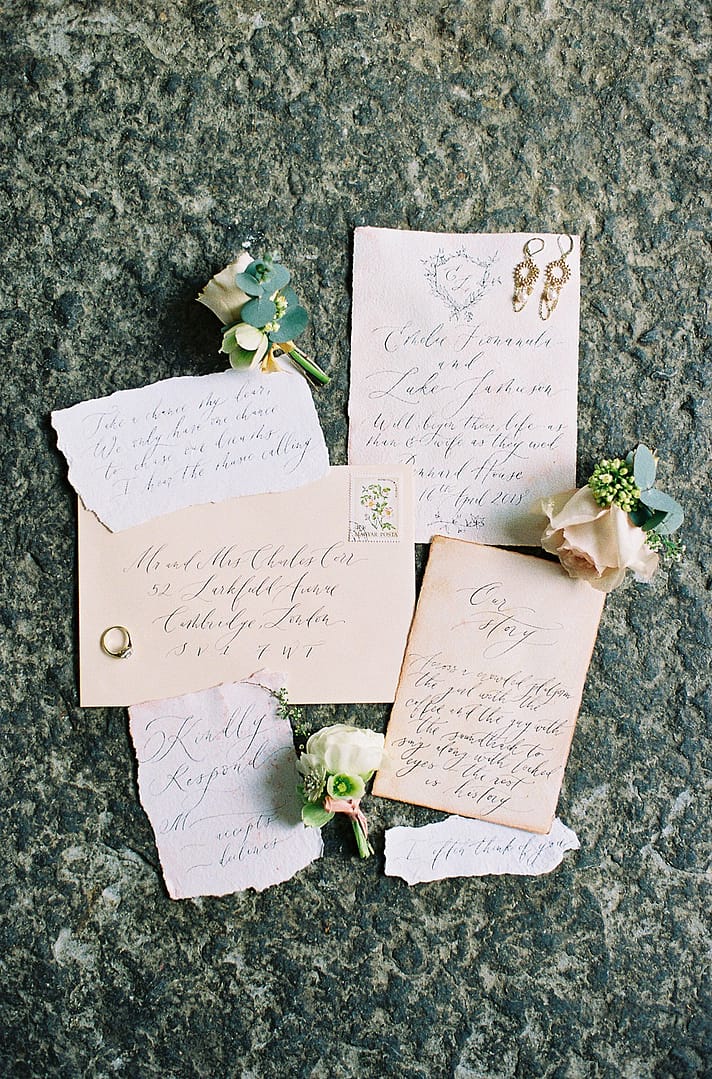 Take a chance my dear,
We only have one chance
to chase our dreams
& I hear the music calling
and
Luke Jamieson
Will begin their life as
man & wife as they wed
House
16th April 2018
MAGYAR POSTA
Mr and Mrs Charles Corr
52 Larkfield Avenue
Cambridge, London
SV1 7WT
Our
story
Across a crowded platform
the girl with the
coffee and the guy with
the soundtrack to
sing along with locked
eyes & the rest
is history
Kindly
Respond
M
accepts
declines
I often think of you